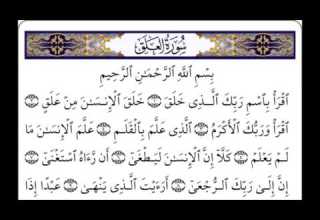 سُورَةُ العَلَقِ
بِسْمِ اللَّهِ الرَّحْمَٰنِ الرَّحِيمِ
ٱقْرَأْ بِٱسْمِ رَبِّكَ ٱلَّذِى خَلَقَ خَلَقَ ٱلْإِنسَٰنَ مِنْ عَلَقٍ
ٱقْرَأْ وَرَبُّكَ ٱلْأَكْرَمُ ٱلَّذِى عَلَّمَ بِٱلْقَلَمِ عَلَّمَ ٱلْإِنسَٰنَ مَا
لَمْ يَعْلَمْ كَلَّآ إِنَّ ٱلْإِنسَٰنَ لَيَطْغَىٰٓ أَن رَّءَاهُ ٱسْتَغْنَىٰٓ
إِنَّ إِلَىٰ رَبِّكَ ٱلرُّجْعَىٰٓ أَرَءَيْتَ ٱلَّذِى يَنْهَىٰ عَبْدًا إِذَا